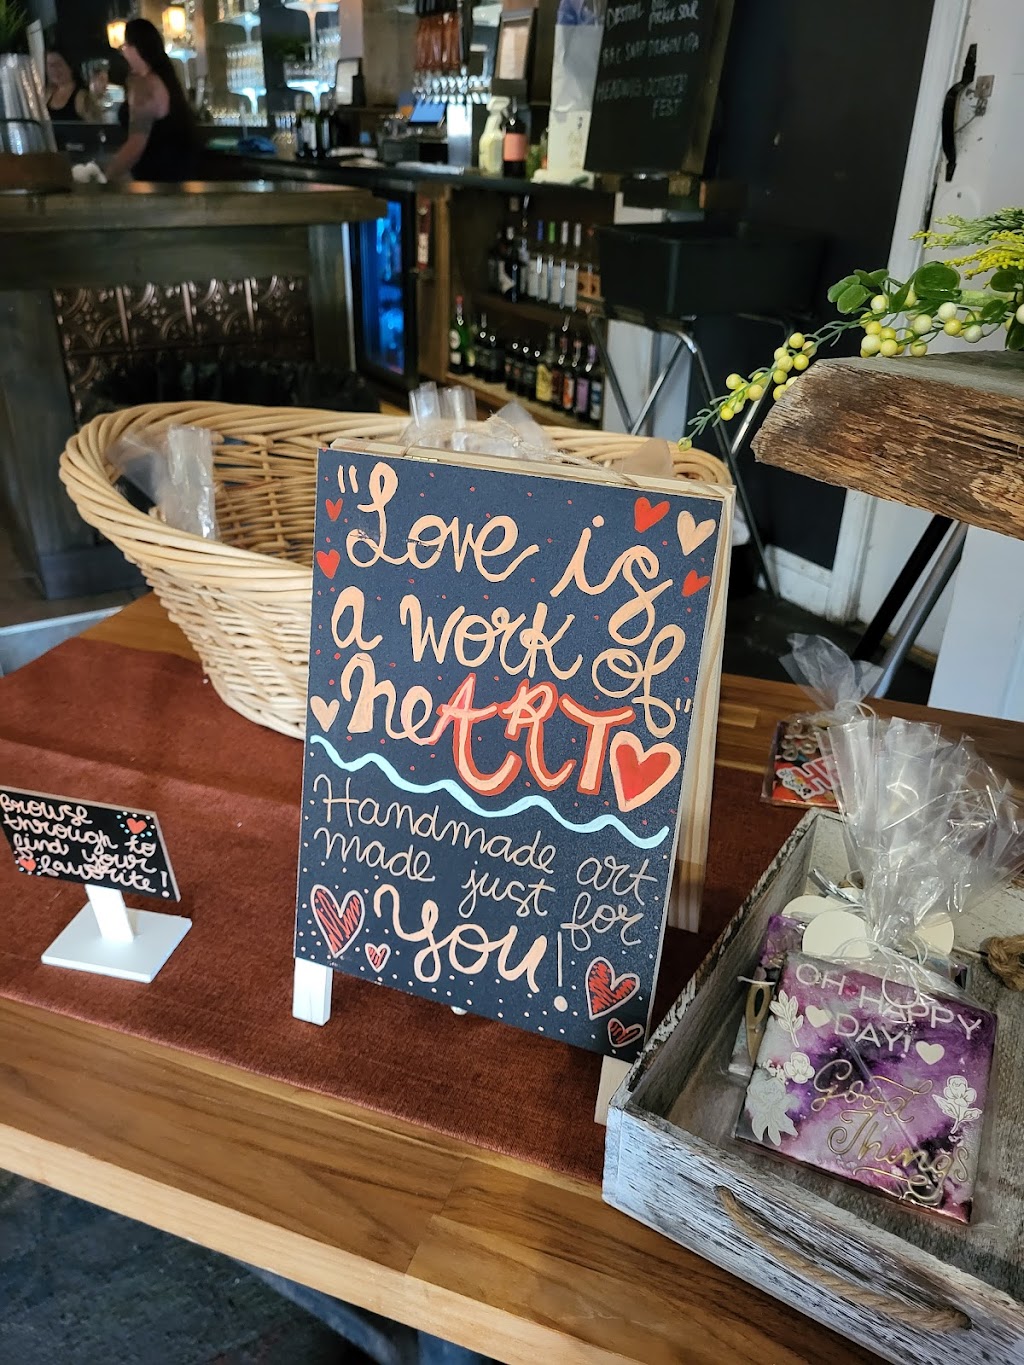 PICKLE SOUR
SNAP DRAGON IPA
OCTOBER
FEST
"Love is
a work of"
heART
Handmade art
made just for
You!
Browse
through to
find your
favorite!
OH HAPPY
DAY!
Good
Things